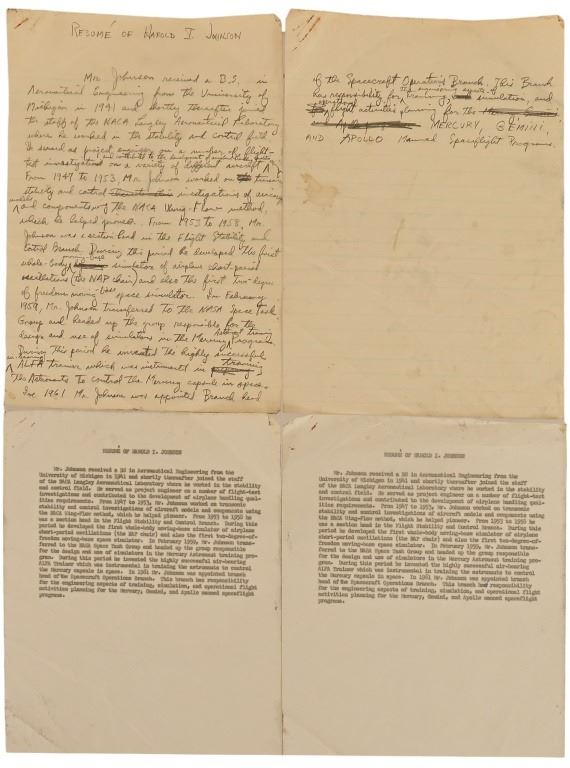 RESUMÉ OF HAROLD I. JOHNSON
Mr. Johnson received a B.S. in
Aeronautical Engineering from the University of
Michigan in 1941 and shortly thereafter joined
the staff of the NACA Langley Aeronautical Laboratory
where he worked in the stability and control field.
He served as project engineer on a number of flight-
test investigations and contributed to the development of airplane handling qualities on a variety of different aircraft
From 1947 to 1953, Mr. Johnson worked on transonic
stability and control investigations of aircraft
models and components using the NACA Wing-Flow method,
which he helped pioneer. From 1953 to 1958, Mr.
Johnson was a section head in the Flight Stability and
Control Branch. During this period he developed the first
whole-body moving-base simulator of airplane short-period
oscillations (the NAP chair) and also the first two-degree-
of freedom moving base space simulator. In February
1959, Mr. Johnson transferred to the NASA Space Task
Group and headed up the group responsible for the
design and use of simulators in the Mercury Astronaut training Program.
During this period he invented the highly successful
air-bearing ALFA trainer which was instrumental in training
the Astronauts to control the Mercury capsule in space.
In 1961 Mr. Johnson was appointed Branch head
of the Spacecraft Operations Branch. This Branch
has responsibility for the engineering aspects of training, simulation, and
operational flight activities planning for the
MERCURY, GEMINI,
AND APOLLO Manned Spaceflight Programs.
RESUMÉ OF HAROLD I. JOHNSON
Mr. Johnson received a BS in Aeronautical Engineering from the
University of Michigan in 1941 and shortly thereafter joined the staff
of the NACA Langley Aeronautical Laboratory where he worked in the stability
and control field. He served as project engineer on a number of flight-test
investigations and contributed to the development of airplane handling qual-
ities requirements. From 1947 to 1953, Mr. Johnson worked on transonic
stability and control investigations of aircraft models and components using
the NACA Wing-Flow method, which he helped pioneer. From 1953 to 1958 he
was a section head in the Flight Stability and Control Branch. During this
period he developed the first whole-body moving-base simulator of airplane
short-period oscillations (the NAP chair) and also the first two-degree-of-
freedom moving-base space simulator. In February 1959, Mr. Johnson trans-
ferred to the NASA Space Task Group and headed up the group responsible
for the design and use of simulators in the Mercury Astronaut training pro-
gram. During this period he invented the highly successful air-bearing
ALFA Trainer which was instrumental in training the astronauts to control
the Mercury capsule in space. In 1961 Mr. Johnson was appointed branch
head of the Spacecraft Operations Branch. This branch has responsibility
for the engineering aspects of training, simulation, and operational flight
activities planning for the Mercury, Gemini, and Apollo manned spaceflight
programs.
RESUMÉ OF HAROLD I. JOHNSON
Mr. Johnson received a BS in Aeronautical Engineering from the
University of Michigan in 1941 and shortly thereafter joined the staff
of the NACA Langley Aeronautical Laboratory where he worked in the stability
and control field. He served as project engineer on a number of flight-test
investigations and contributed to the development of airplane handling quali-
ties requirements. From 1947 to 1953, Mr. Johnson worked on transonic
stability and control investigations of aircraft models and components using
the NACA Wing-Flow method, which he helped pioneer. From 1953 to 1958 he
was a section head in the Flight Stability and Control Branch. During this
period he developed the first whole-body moving-base simulator of airplane
short-period oscillations (the NAP chair) and also the first two-degree-of-
freedom moving-base space simulator. In February 1959, Mr. Johnson trans-
ferred to the NASA Space Task Group and headed up the group responsible
for the design and use of simulators in the Mercury Astronaut training pro-
gram. During this period he invented the highly successful air-bearing
ALFA Trainer which was instrumental in training the astronauts to control
the Mercury capsule in space. In 1961 Mr. Johnson was appointed branch
head of the Spacecraft Operations Branch. This branch has responsibility
for the engineering aspects of training, simulation, and operational flight
activities planning for the Mercury, Gemini, and Apollo manned spaceflight
programs.